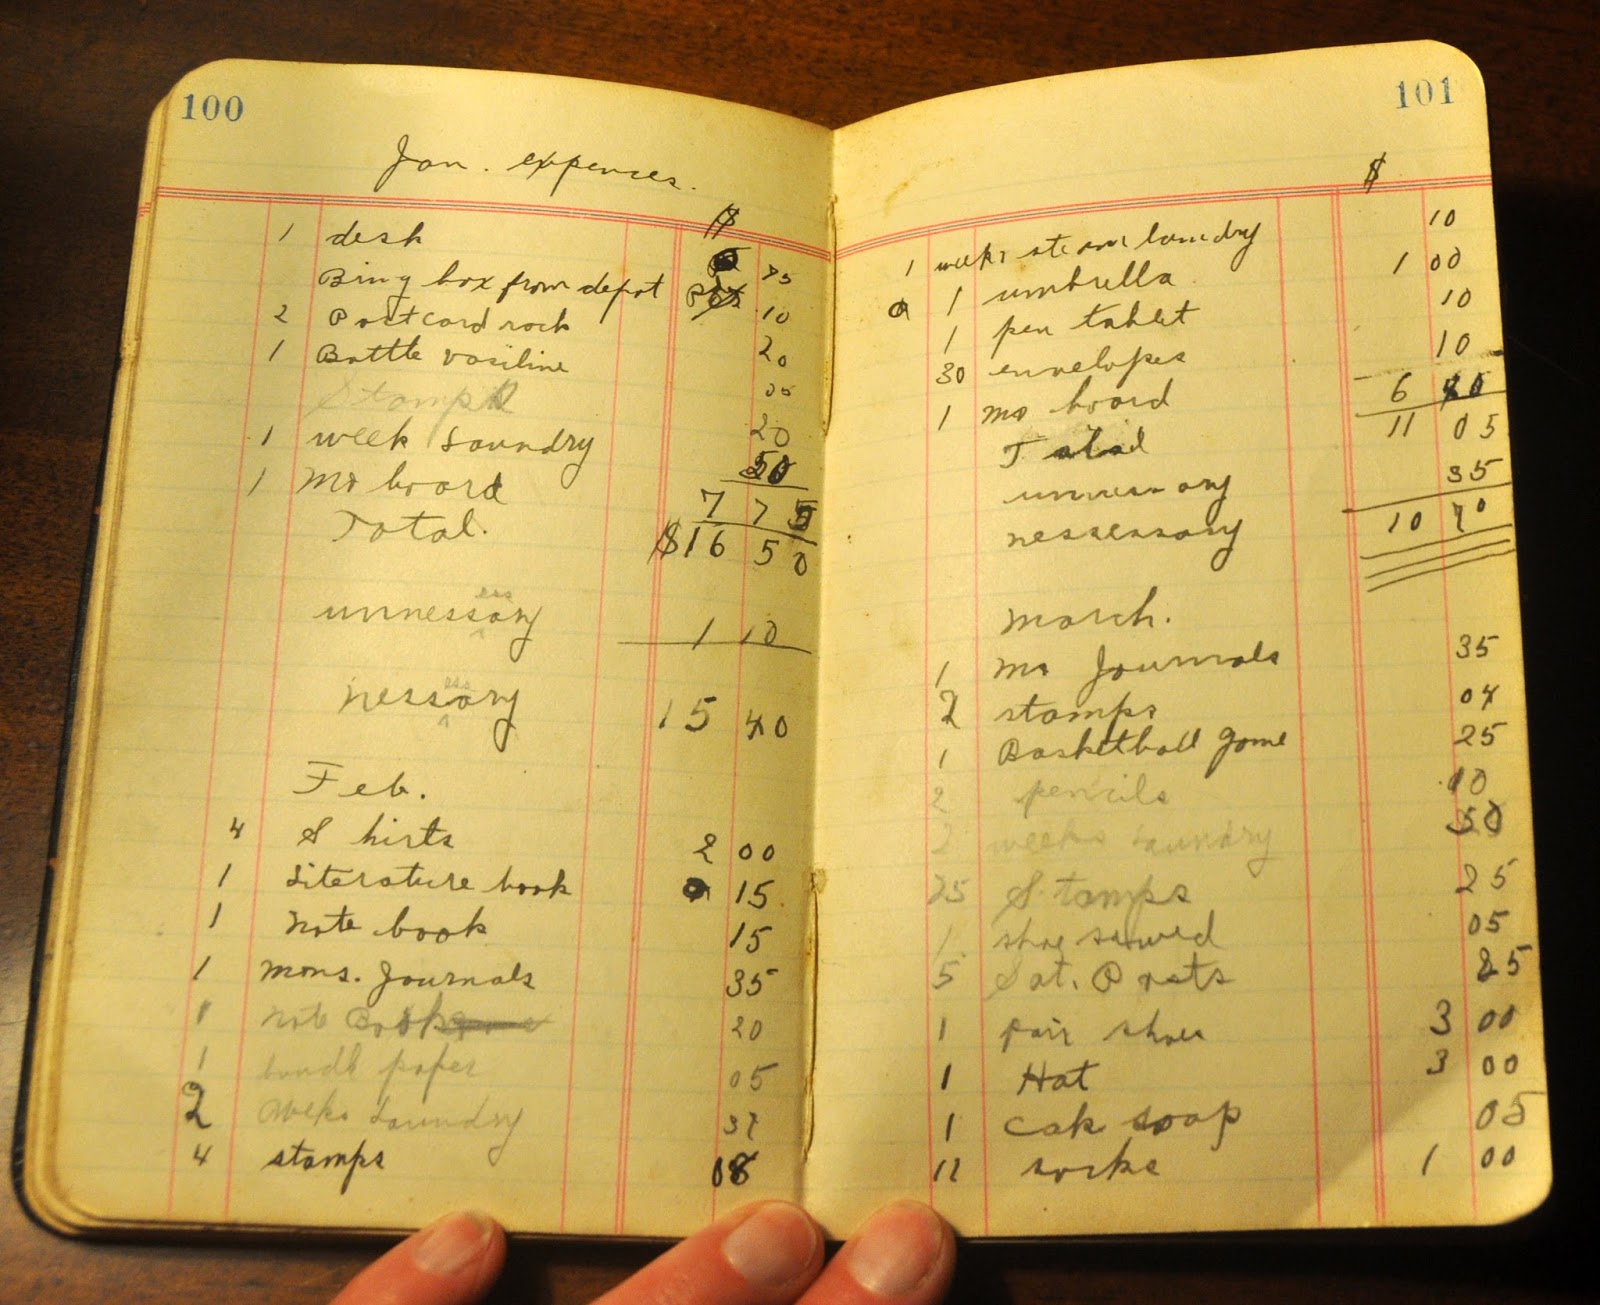 100
Jan. expences.
$
1 desk 75
Bring box from depot 10
2 Postcard rack 20
1 Bottle vasiline 05
Stamps 20
1 week Laundry 50
1 Mo board 7 75
Total. $16 50
unnessessary 1 10
nessessary 15 40
Feb.
4 Shirts 2 00
1 Literature book 15
1 Note book 15
1 Mons. Journals 35
1 Note Book 20
1 bundle paper 05
2 Weeks Laundry 37
4 stamps 08
101
$
1 weeks steam laundry 10
1 umbrella 1 00
1 pen tablet 10
30 envelopes 10
1 mo board 6
Total 11 05
35
nessessary 10 70
March.
1 Mo Journals 35
2 stamps 04
1 Basketball game 25
2 pencils 10
2 weeks Laundry 50
25 Stamps 25
1 shoe sewed 05
5 Sat. Posts 25
1 pair shoes 3 00
1 Hat 3 00
1 cak soap 05
12 socks 1 00